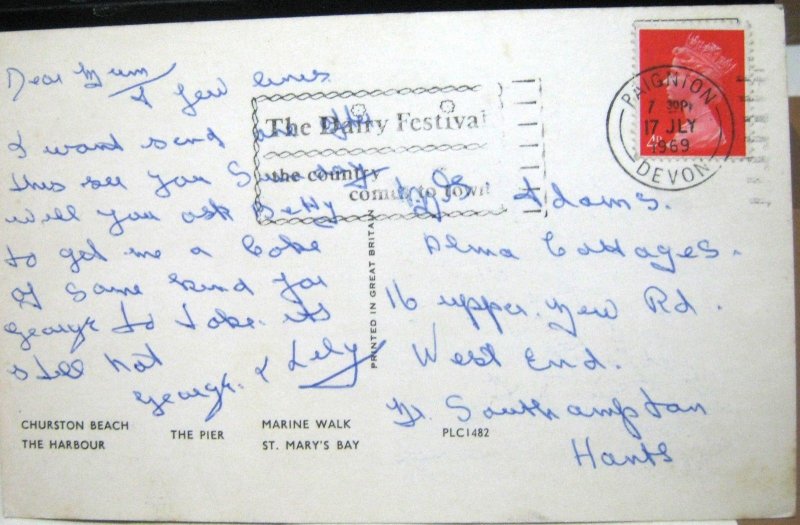 Dear Mum
A few lines
I want send
this see you Sunday
will you ask Betty
to get me a Cake
of some kind for
george to take. its
still hot
george. & Lily
The Dairy Festival
the country
comes to town!
PAIGNTON
7 30PM
17 JLY
1969
DEVON
4D
Mrs Adams.
Alma Cottages.
16 upper. New Rd.
West End.
Nr. Southampton
Hants
PRINTED IN GREAT BRITAIN
CHURSTON BEACH
THE HARBOUR
THE PIER
MARINE WALK
ST. MARY'S BAY
PLC1482